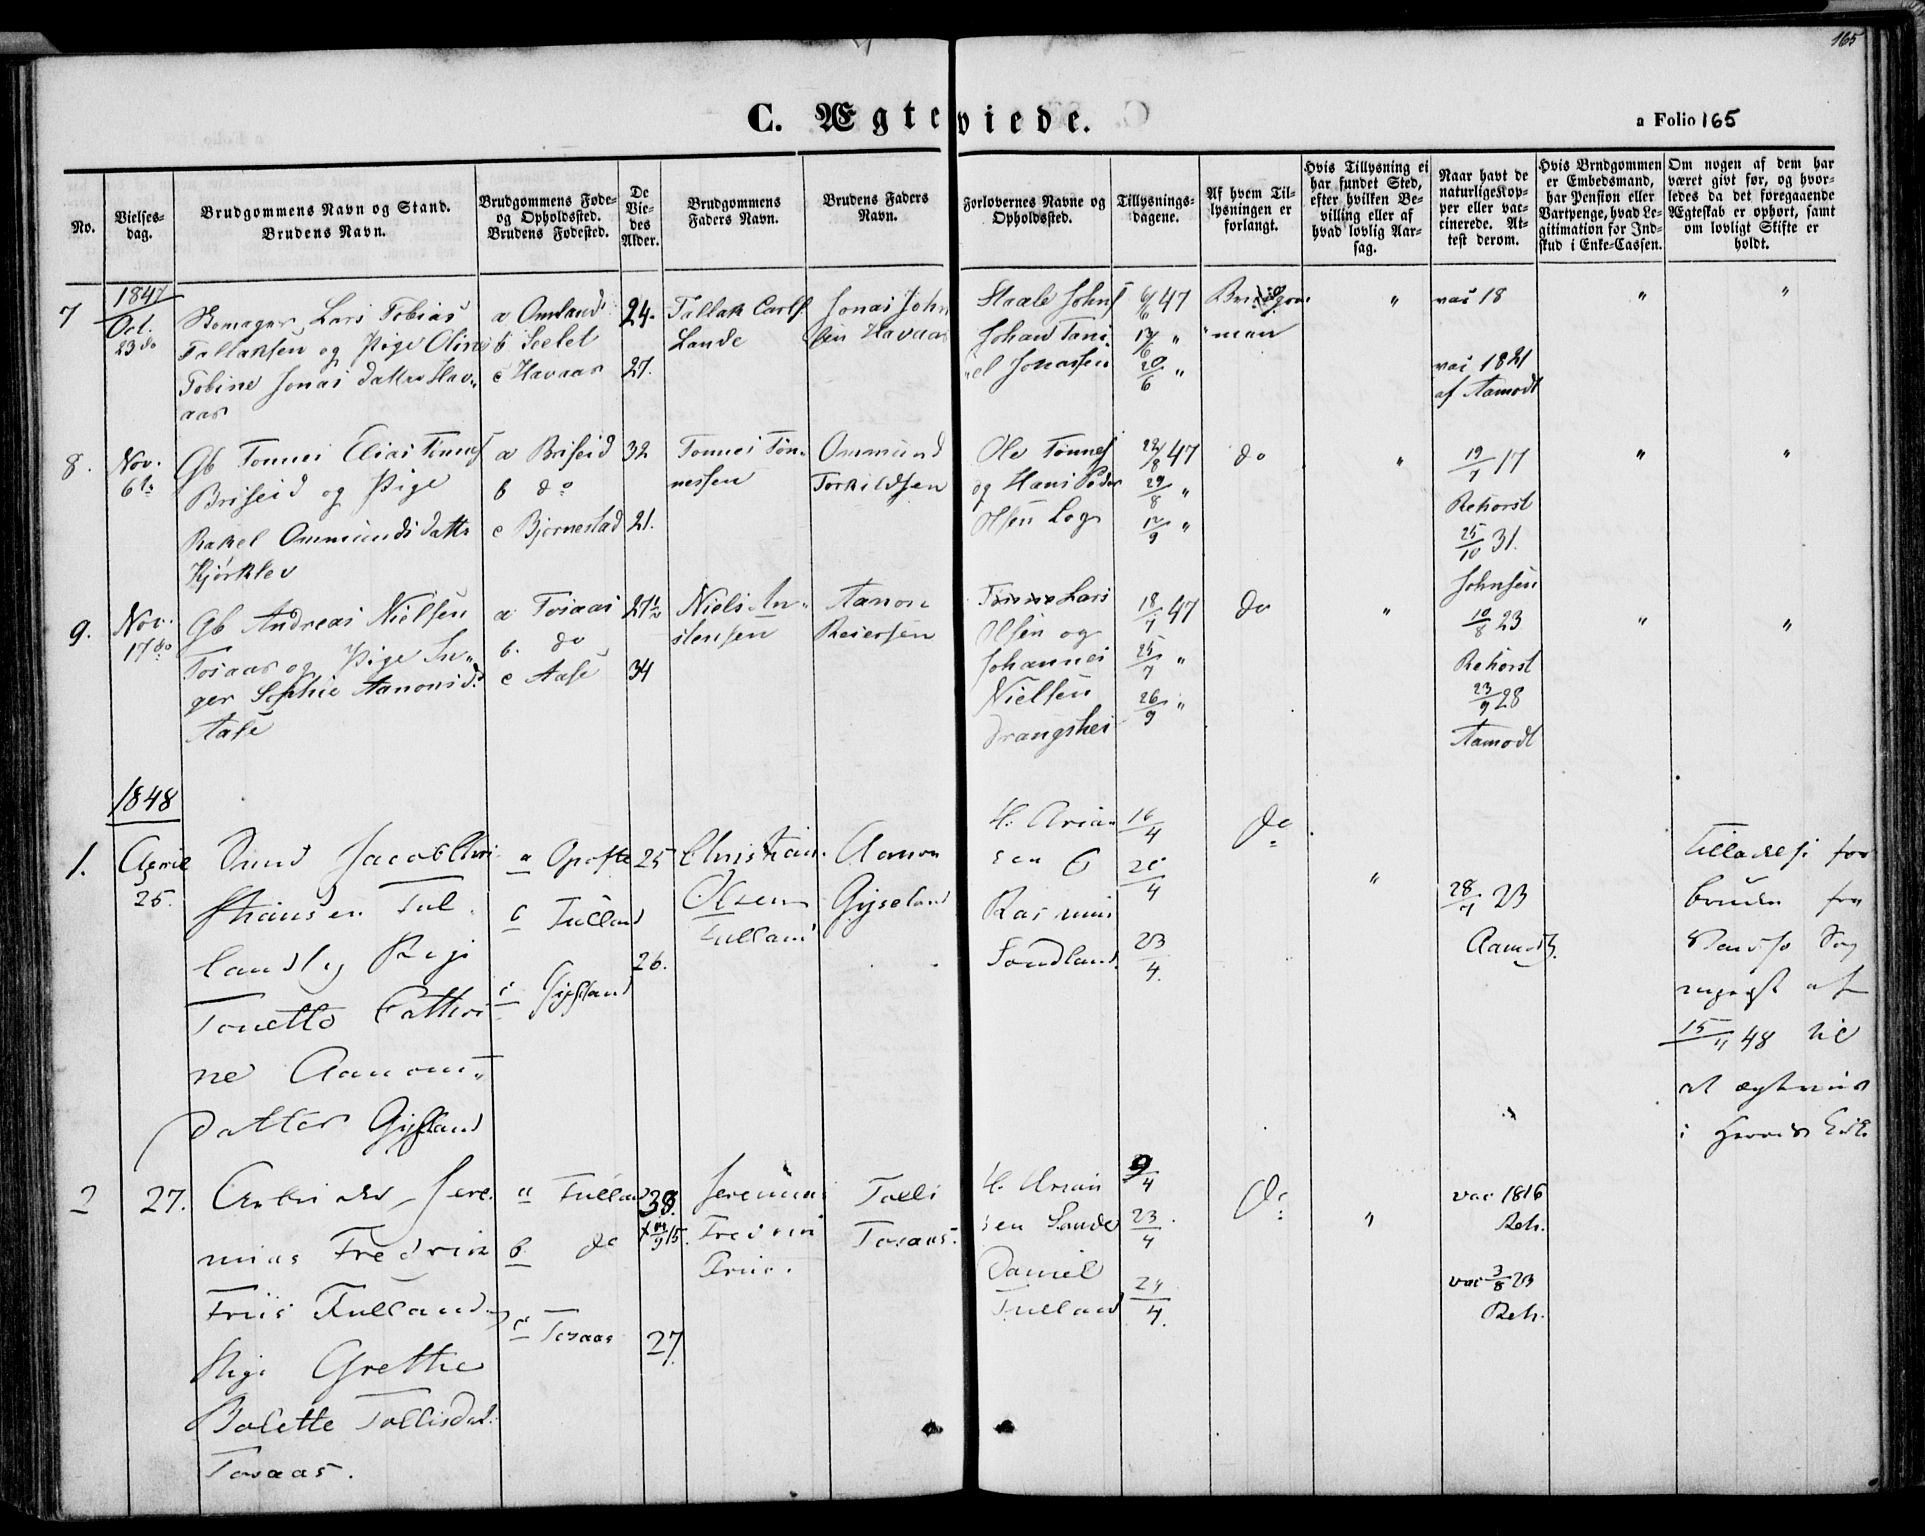 165
C. Ægteviede.
a Folio 165
No.
Vielses-
dag.
Brudgommens Navn og Stand.
Brudens Navn.
Brudgommens Føde-
og Opholdssted.
Brudens Fødested.
De
Vie-
des
Alder.
Brudgommens
Faders Navn.
Brudens Faders
Navn.
Forlovernes Navne og
Opholdssted.
Tillysnings-
dagene.
Af hvem Til-
lysningen er
forlangt.
Hvis Tillysning ei
har fundet Sted,
efter hvilken Be-
villing eller af
hvad lovlig Aar-
sag.
Naar havt de
naturlige Kop-
per eller vac-
cinerede. At-
test derom.
Hvis Brudgommen
er Embedsmand,
har Pension eller
Vartpenge, hvad Le-
gitimation for Ind-
skud i Enke-Cassen.
Om nogen af dem har
været givt før, og hvor-
ledes da det foregaaende
Ægteskab er ophørt, samt
om lovligt Skifte er
holdt.
7
1847
Oct.
23 do
Lars Tobias
Tallaksen og Pige Oline
Tobine Jonas datter Hav-
aas
a Omland
b Seelet
c Havaas
24.
27.
Tallak Carls
Lande
Jonas John
sen Havaas
Staale Johns
Johan Tani
el Jonassen
6/6 47
13/6 "
20/6 "
Brudgom
man
"
vac 18
vac 1821
af Aamodt
"
"
8.
Nov.
6te
Gb Tønnes Elias Tønnes
Briseid og Pige
Rakel Ommunds datter
Kjørklev
a Briseid
b do
c Bjørnestad
32
21.
Tønnes Tøn-
nessen
Ommund
Torkildsen
Ole Tønnes
og Hans Peder
Olsen Log
22/8 47
29/8 "
12/9 "
do
"
19/7 17
Rehorst
25/10 31.
Johnsen
"
"
9.
Nov.
17 do
Gb Andreas Nielsen
Tosaas og Pige In-
ger Sophie Aanons d.
Aase
a Tosaas
b. do
c Aase
27 1/2
34
Niels An-
stensen
Aanon
Reiersen
Lars
Olsen og
Johannes
Nielsen
Drangshei
18/7 47
25/7 "
26/9 "
do
"
10/8 23
Rehorst
23/9 28
Aamodt
"
"
1848
1.
April
25.
Jacob Chri
stiansen Ful
land og Pige
Tonette Cathri
ne Aanons
datter Gysland
a Opofte
b Fulland
c Gysland
25
26.
Christian
Olsen
Fulland
Aanon
Gyseland
H. Arian
sen
Rasmus
Sondland
16/4
20/4
23/4.
do
"
28/7 23
Aamodt.
Tilladelse for
bruden fra
15/4 48 til
at ægtevies
i
2
27.
Jere
mias Fredrik
Friis Fulland
Pige Grethe
Bolette Tollisdat.
Tosaas.
a Fulland
b do
c Tosaas
38.
27.
Jeremias
Fredrik
Friis.
Tolli
Tosaas.
H. Arian
sen Lande
Daniel
Fulland
9/4
23/4
24/4.
do
"
vac 1816
Reh.
vac 3/8 23
Reh.